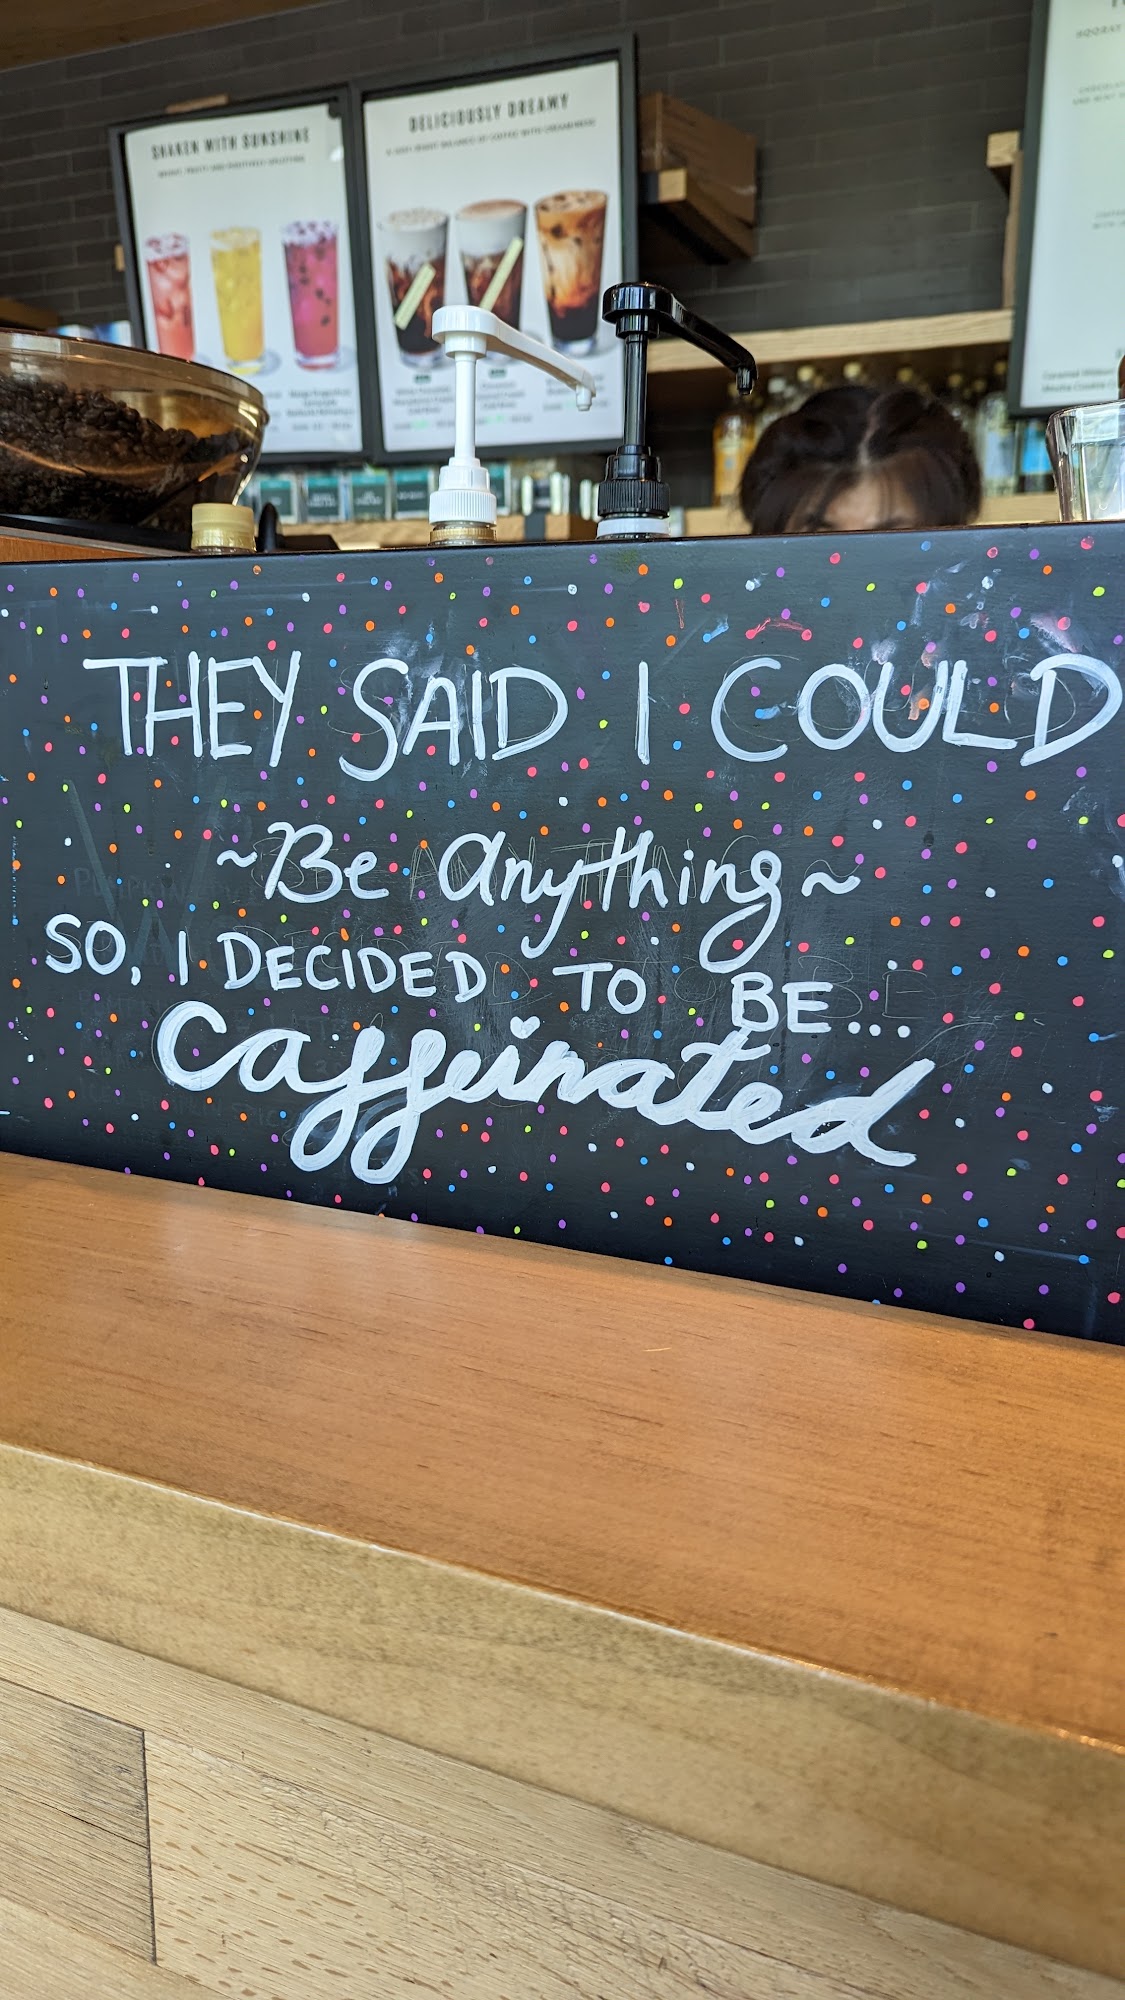 SHAKEN WITH SUNSHINE
DELICIOUSLY DREAMY
THEY SAID I COULD
~Be anything~
SO, I DECIDED TO BE...
Caffeinated